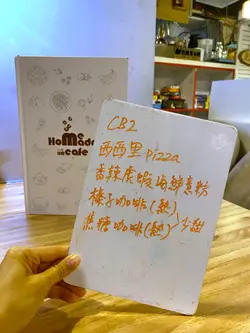 Home
Made
cafe
CB2
西西里pizza
香辣鹿蝦海鮮意粉
榛子咖啡(熱)
焦糖咖啡(熱) 少甜